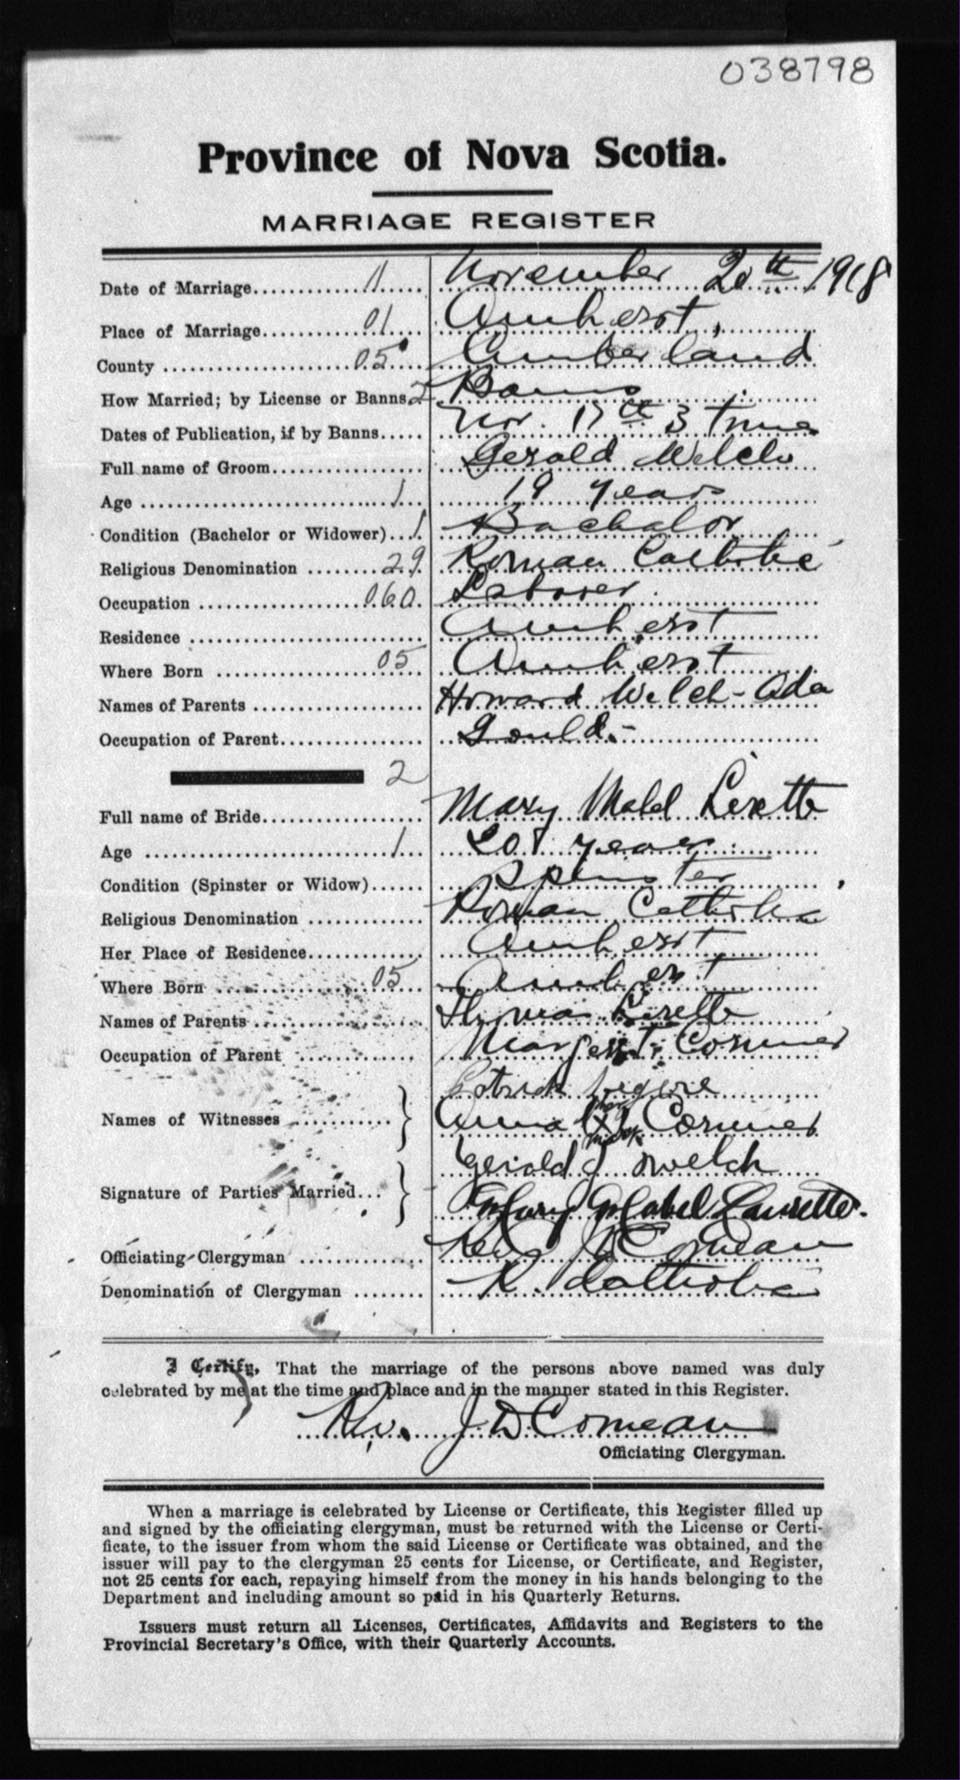 038798
Province of Nova Scotia.
MARRIAGE REGISTER
Date of Marriage 11 November 20th 1918
Place of Marriage 01 Amherst,
County 05 Cumberland
How Married; by License or Banns 2 Banns
Dates of Publication, if by Banns Nov. 17th 3 Times
Full name of Groom Gerald Welch
Age 1 19 years
Condition (Bachelor or Widower) 1 Bachalor
Religious Denomination 29 Roman Catholic
Occupation 060 Laborer
Residence Amherst
Where Born 05 Amherst
Names of Parents Howard Welch - Ada
Occupation of Parent Gould.-
2
Full name of Bride Mary Mabel Lirette
Age 1 20 years
Condition (Spinster or Widow) Spinster
Religious Denomination Roman Catholic
Her Place of Residence Amherst
Where Born 05 Amherst
Names of Parents Thomas Lirette
Occupation of Parent Margeret Cormier
Names of Witnesses Patrick
Anna her X mark Cormier
Signature of Parties Married Gerald J Welch
Mary Mabel Laurette.
Officiating Clergyman Rev J D Comeau
Denomination of Clergyman R. Catholic
I Certify, That the marriage of the persons above named was duly
celebrated by me at the time and place and in the manner stated in this Register.
Rev. J D Comeau
Officiating Clergyman.
When a marriage is celebrated by License or Certificate, this Register filled up
and signed by the officiating clergyman, must be returned with the License or Certi-
ficate, to the issuer from whom the said License or Certificate was obtained, and the
issuer will pay to the clergyman 25 cents for License, or Certificate, and Register,
not 25 cents for each, repaying himself from the money in his hands belonging to the
Department and including amount so paid in his Quarterly Returns.
Issuers must return all Licenses, Certificates, Affidavits and Registers to the
Provincial Secretary's Office, with their Quarterly Accounts.